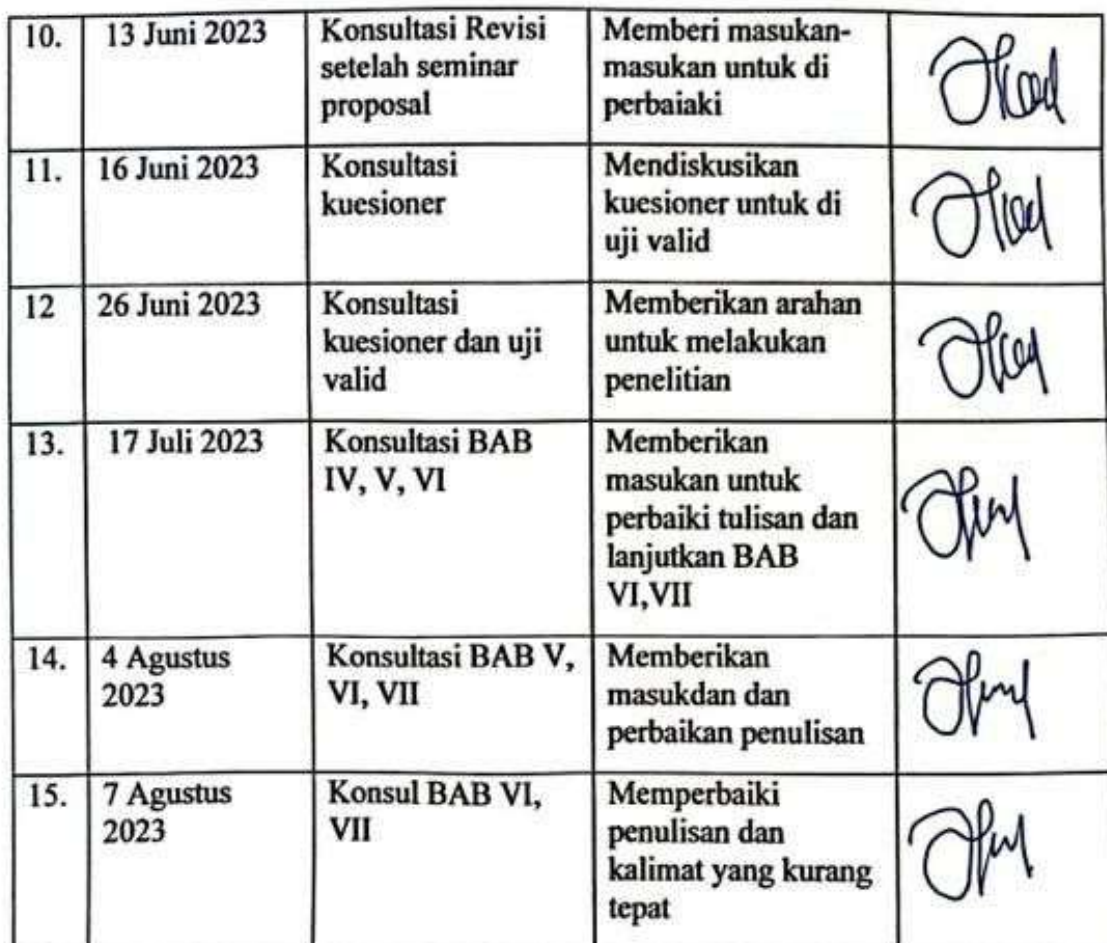 10.
13 Juni 2023
Konsultasi Revisi
setelah seminar
proposal
Memberi masukan-
masukan untuk di
perbaiaki
11.
16 Juni 2023
Konsultasi
kuesioner
Mendiskusikan
kuesioner untuk di
uji valid
12
26 Juni 2023
Konsultasi
kuesioner dan uji
valid
Memberikan arahan
untuk melakukan
penelitian
13.
17 Juli 2023
Konsultasi BAB
IV, V, VI
Memberikan
masukan untuk
perbaiki tulisan dan
lanjutkan BAB
VI,VII
14.
4 Agustus
2023
Konsultasi BAB V,
VI, VII
Memberikan
masukdan dan
perbaikan penulisan
15.
7 Agustus
2023
Konsul BAB VI,
VII
Memperbaiki
penulisan dan
kalimat yang kurang
tepat